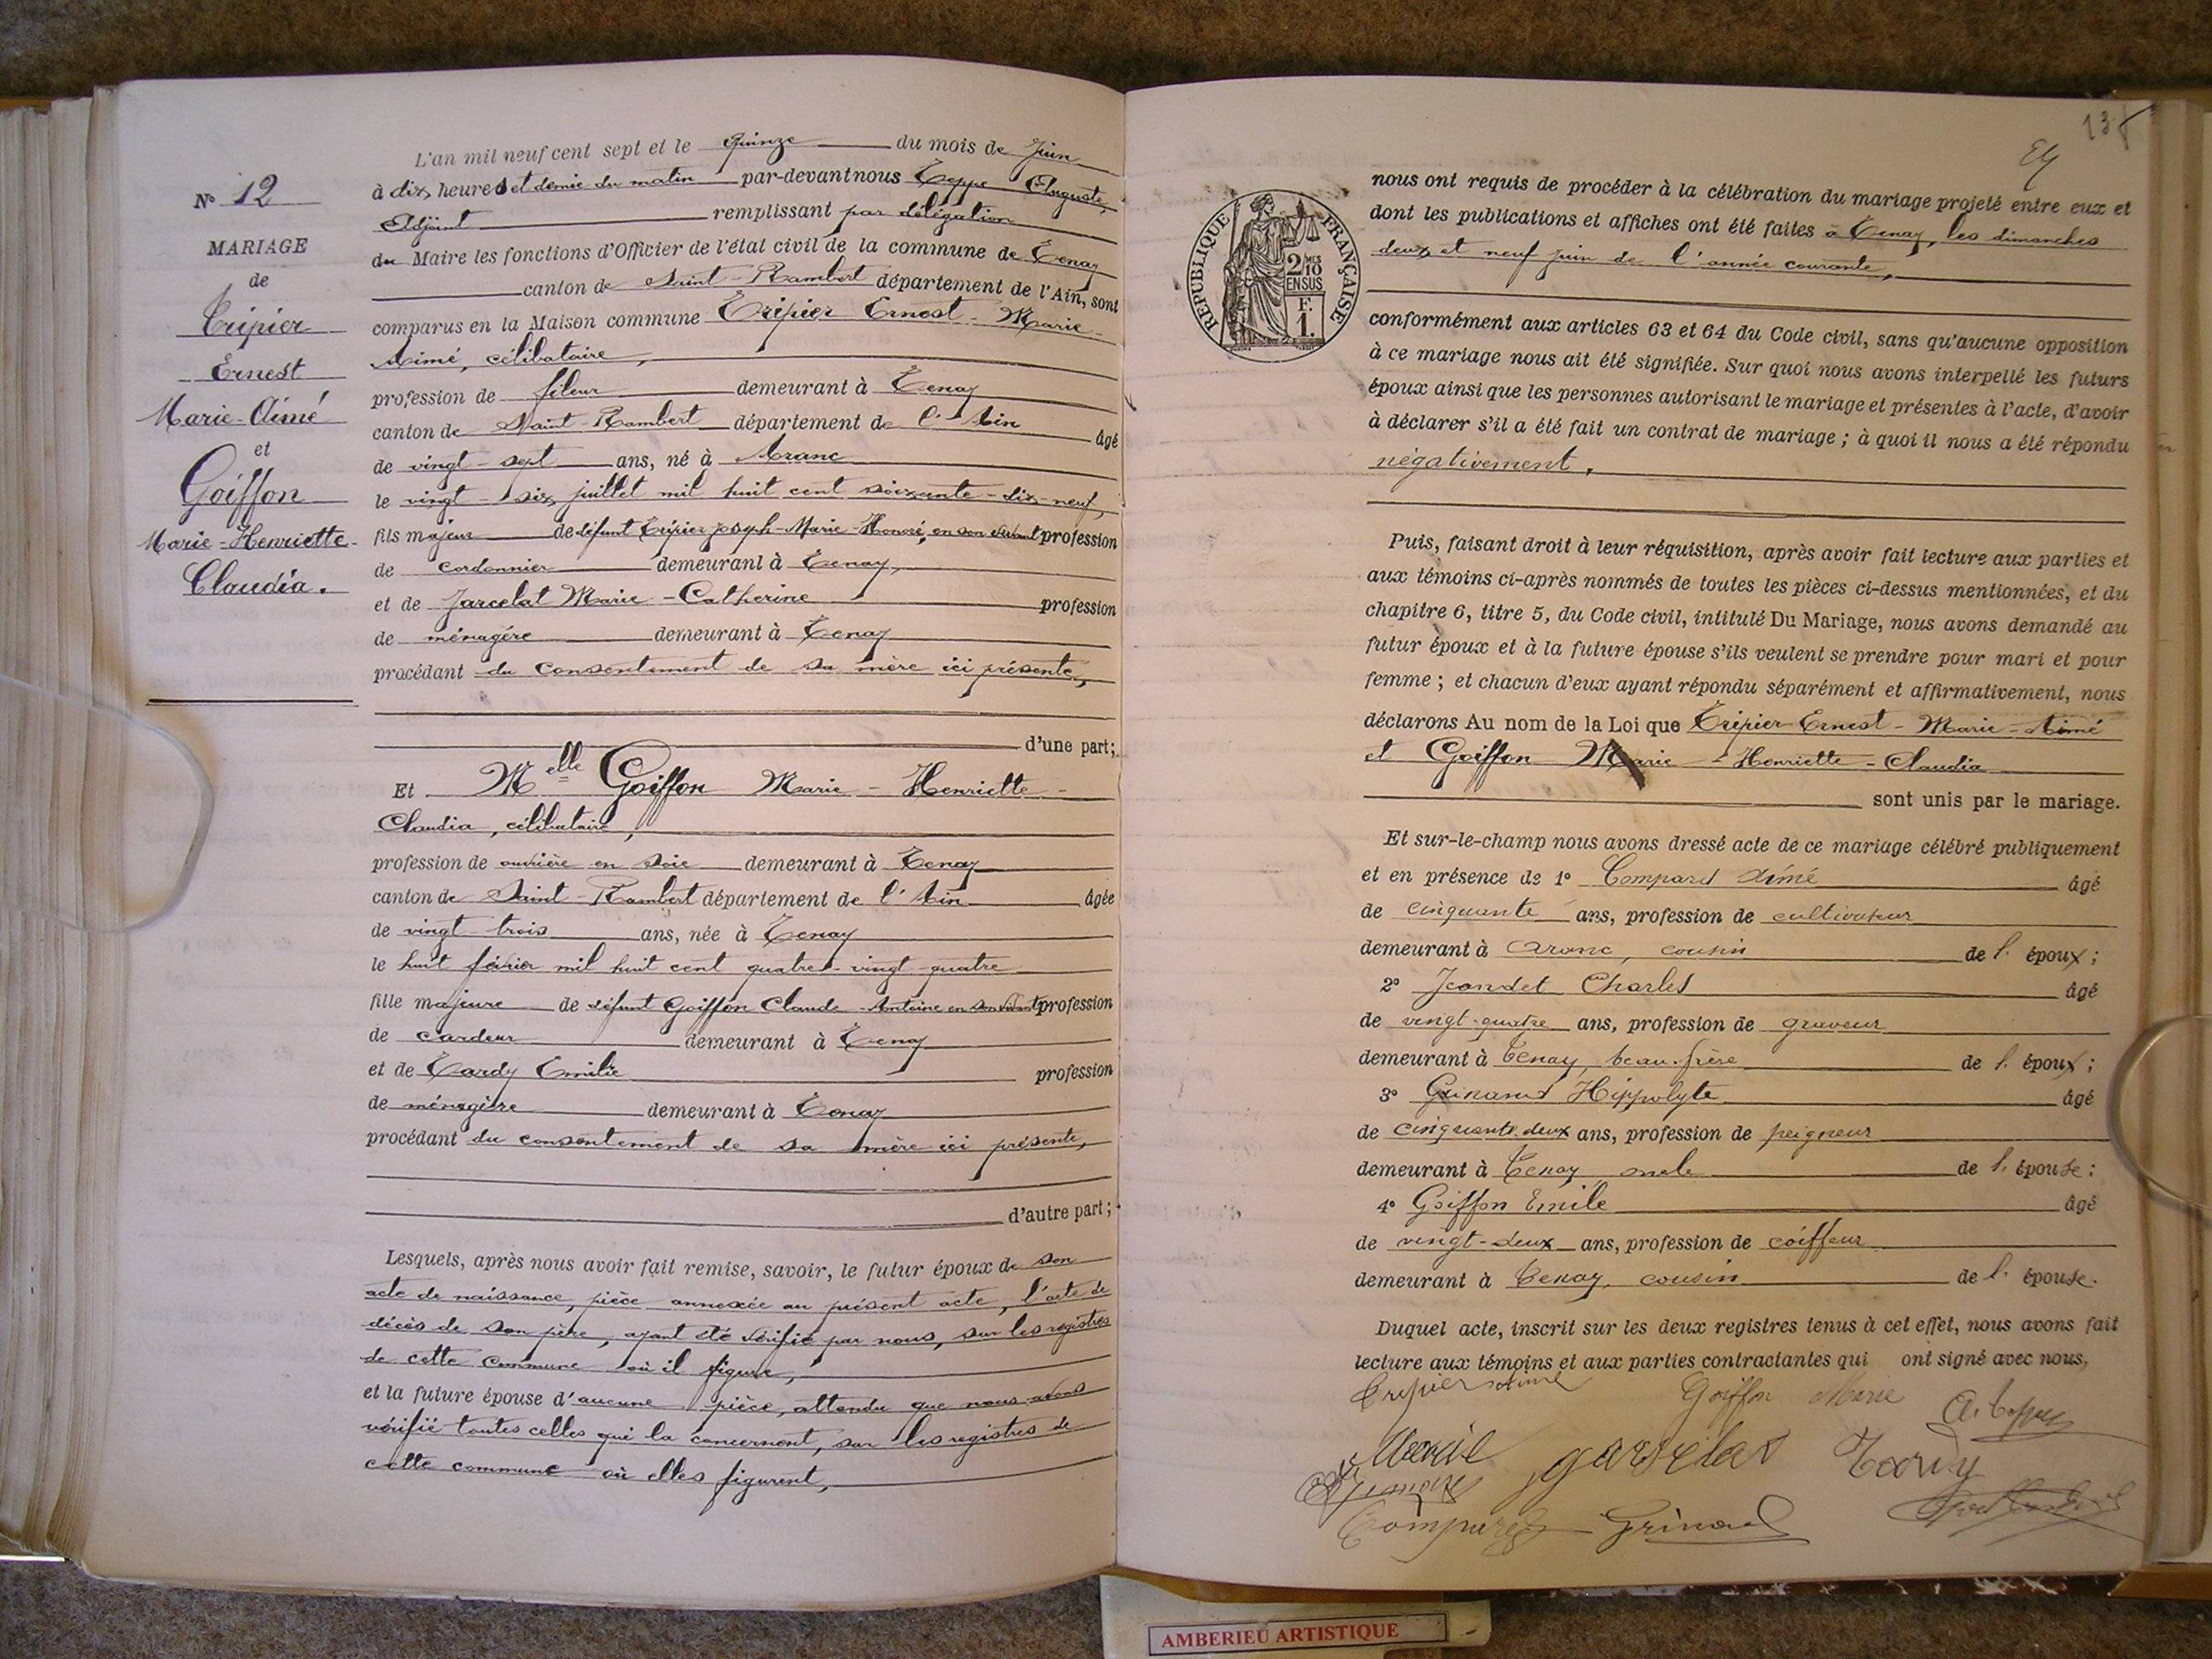 N° 12
MARIAGE
de
Tripier
Ernest
Marie-Aimé
et
Goiffon
Marie-Henriette-
Claudia.
L'an mil neuf cent sept et le quinze du mois de Juin
à dix heures et demie du matin par-devant nous Teppe Auguste,
Adjoint remplissant par délégation
du Maire les fonctions d'Officier de l'état civil de la commune de Tenay
canton de Saint-Rambert département de l'Ain, sont
comparus en la Maison commune Tripier Ernest-Marie-
Aimé, célibataire,
profession de fileur demeurant à Tenay
canton de Saint-Rambert département de l'Ain âgé
de vingt-sept ans, né à Aranc
le vingt-six juillet mil huit cent soixante-dix-neuf,
fils majeur de défunt Tripier Joseph-Marie-Honoré, en son vivant profession
de cordonnier demeurant à Tenay,
et de Jarcelat Marie-Catherine profession
de ménagère demeurant à Tenay
procédant du consentement de sa mère ici présente,
d'une part;
Et Melle Goiffon Marie-Henriette-
Claudia, célibataire,
profession de ouvrière en soie demeurant à Tenay
canton de Saint-Rambert département de l'Ain âgée
de vingt-trois ans, née à Tenay
le huit février mil huit cent quatre-vingt-quatre
fille majeure de défunt Goiffon Claude-Antoine en son vivant profession
de cardeur demeurant à Tenay
et de Tardy Emilie profession
de ménagère demeurant à Tenay
procédant du consentement de sa mère ici présente,
d'autre part;
Lesquels, après nous avoir fait remise, savoir, le futur époux de son
acte de naissance, pièce annexée au présent acte, l'acte de
décès de son père, ayant été vérifié par nous, sur les registres
de cette commune où il figure,
et la future épouse d'aucune pièce, attendu que nous avons
vérifié toutes celles qui la concernent, sur les registres de
cette commune où elles figurent,
135
REPUBLIQUE FRANÇAISE
2/10 MES
EN SUS
F.
1.
nous ont requis de procéder à la célébration du mariage projeté entre eux et
dont les publications et affiches ont été faites à Tenay, les dimanches
deux et neuf juin de l'année courante,
conformément aux articles 63 et 64 du Code civil, sans qu'aucune opposition
à ce mariage nous ait été signifiée. Sur quoi nous avons interpellé les futurs
époux ainsi que les personnes autorisant le mariage et présentes à l'acte, d'avoir
à déclarer s'il a été fait un contrat de mariage; à quoi il nous a été répondu
négativement.
Puis, faisant droit à leur réquisition, après avoir fait lecture aux parties et
aux témoins ci-après nommés de toutes les pièces ci-dessus mentionnées, et du
chapitre 6, titre 5, du Code civil, intitulé Du Mariage, nous avons demandé au
futur époux et à la future épouse s'ils veulent se prendre pour mari et pour
femme; et chacun d'eux ayant répondu séparément et affirmativement, nous
déclarons Au nom de la Loi que Tripier Ernest-Marie-Aimé
et Goiffon Marie-Henriette-Claudia
sont unis par le mariage.
Et sur-le-champ nous avons dressé acte de ce mariage célébré publiquement
et en présence de 1° Compard Aimé âgé
de cinquante ans, profession de cultivateur
demeurant à Aranc, cousin de l'époux;
2° Jeandet Charles âgé
de vingt-quatre ans, profession de graveur
demeurant à Tenay, beau-frère de l'époux;
3° Grinand Hippolyte âgé
de cinquante-deux ans, profession de peigneur
demeurant à Tenay, oncle de l'épouse;
4° Goiffon Emile âgé
de vingt-deux ans, profession de coiffeur
demeurant à Tenay, cousin de l'épouse.
Duquel acte, inscrit sur les deux registres tenus à cet effet, nous avons fait
lecture aux témoins et aux parties contractantes qui ont signé avec nous.
Tripier Aimé Goiffon Marie A. Teppe
garselat Tardy
Grinand
AMBERIEU ARTISTIQUE